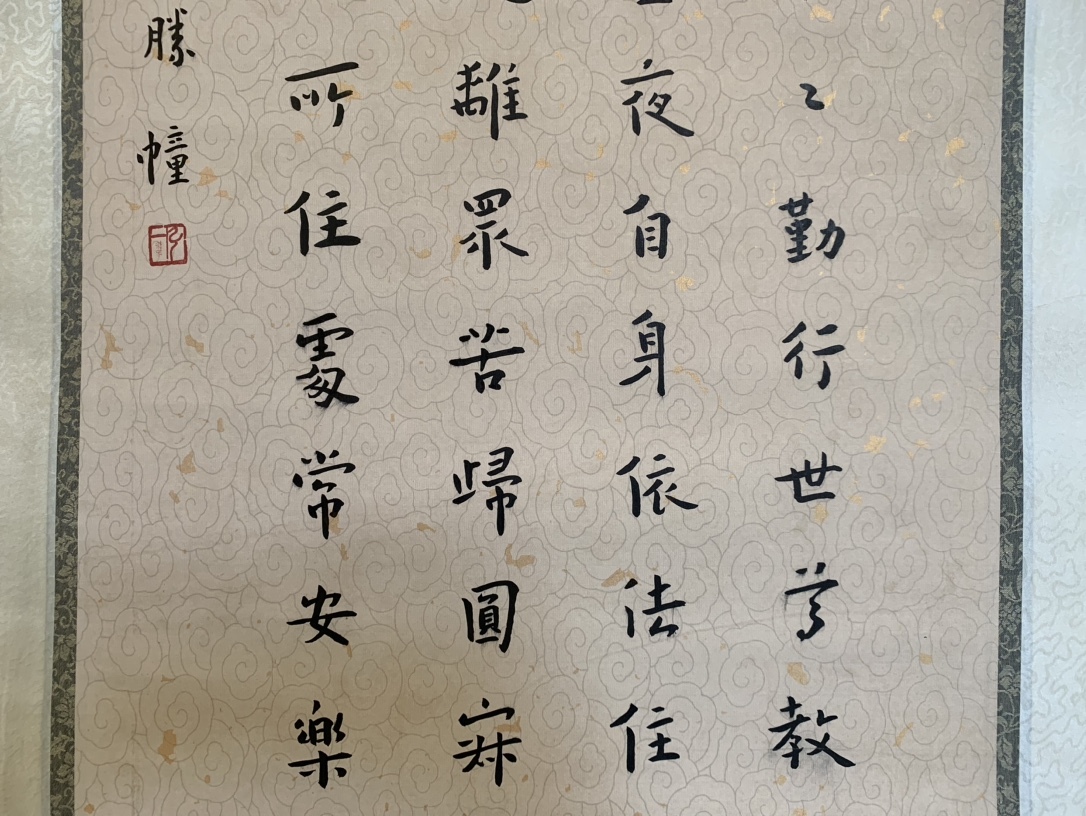 〻勤行世尊教
夜自身依法住
離眾苦歸圓寂
所住處常安樂
勝幢